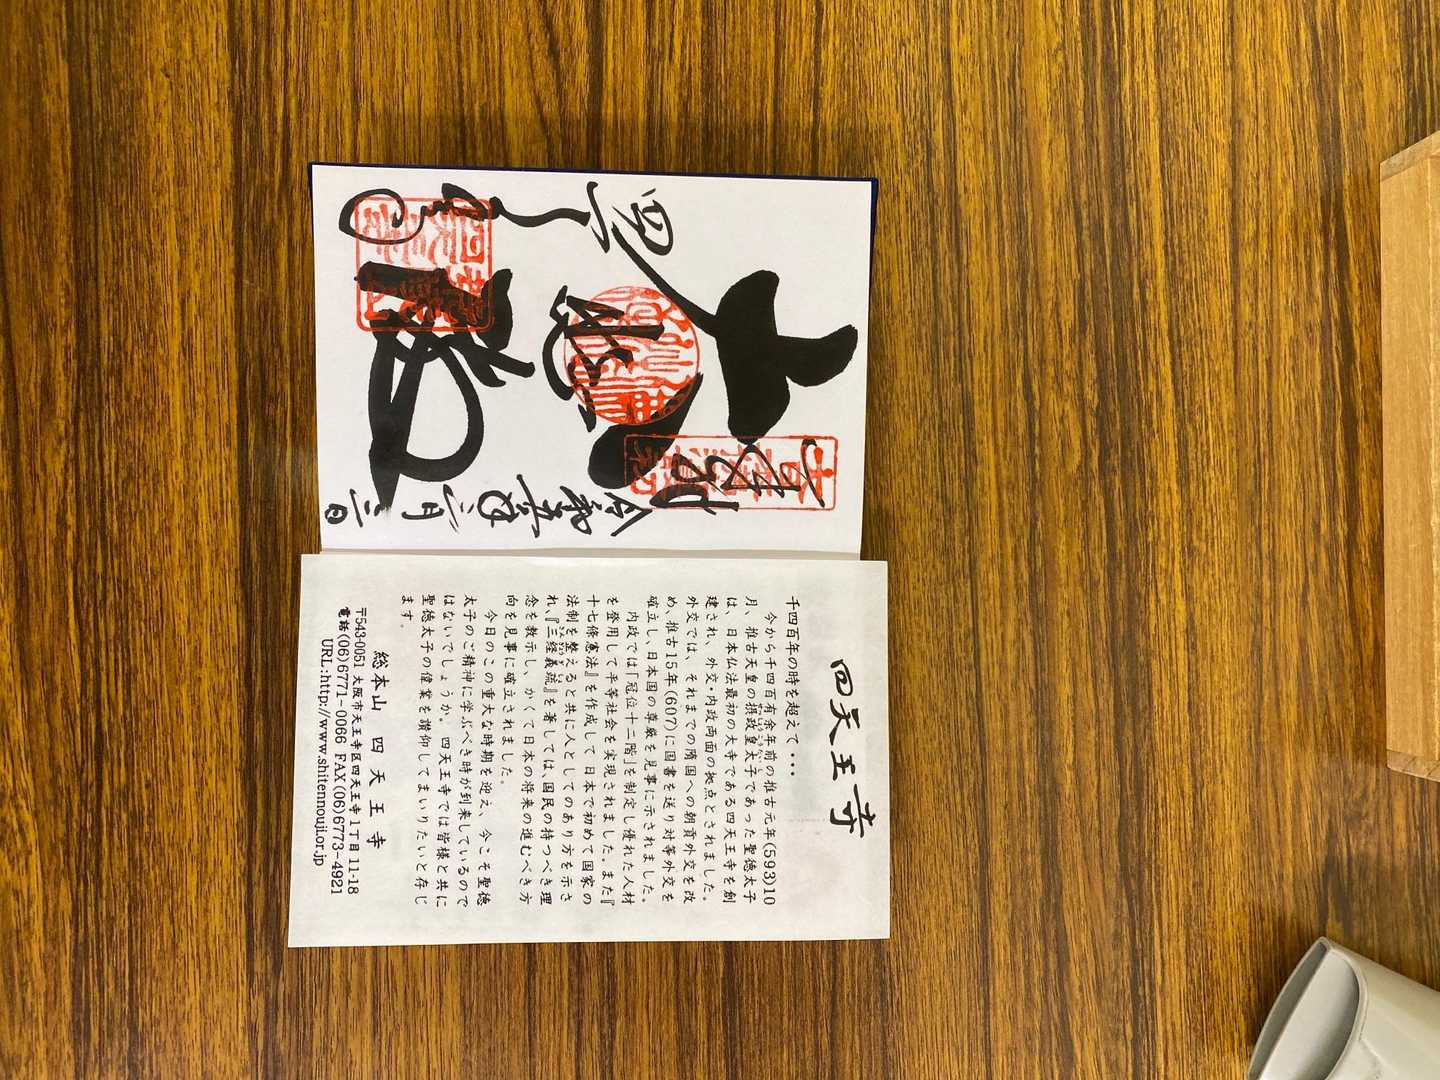 令和五年
二月
三日
四天王寺
千四百年の時を超えて・・・
今から千四百有余年前の推古元年(593)10
月、推古天皇の摂政皇太子であった聖徳太子
は、日本仏法最初の大寺である四天王寺を創
建され、外交・内政両面の拠点とされました。
外交では、それまでの隋国への朝貢外交を改
め、推古15年(607)に国書を送り対等外交を
確立し、日本国の尊厳を見事に示されました。
内政では「冠位十二階」を制定し優れた人材
を登用して平等社会を実現されました。また『
十七條憲法』を作成して日本で初めて国家の
法制を整えると共に人としてのあり方を示さ
れ、『三経義疏』を著しては、国民の持つべき理
念を教示し、かくて日本の将来の進むべき方
向を見事に確立されました。
今日のこの重大な時期を迎え、今こそ聖徳
太子のご精神に学ぶべき時が到来しているので
はないでしょうか。四天王寺では皆様と共に
聖徳太子の偉業を讃仰してまいりたいと存じ
ます。
総本山 四天王寺
〒543-0051 大阪市天王寺区四天王寺1丁目11-18
電話(06)6771-0066 FAX(06)6773-4921
URL:http://www.shitennouji.or.jp